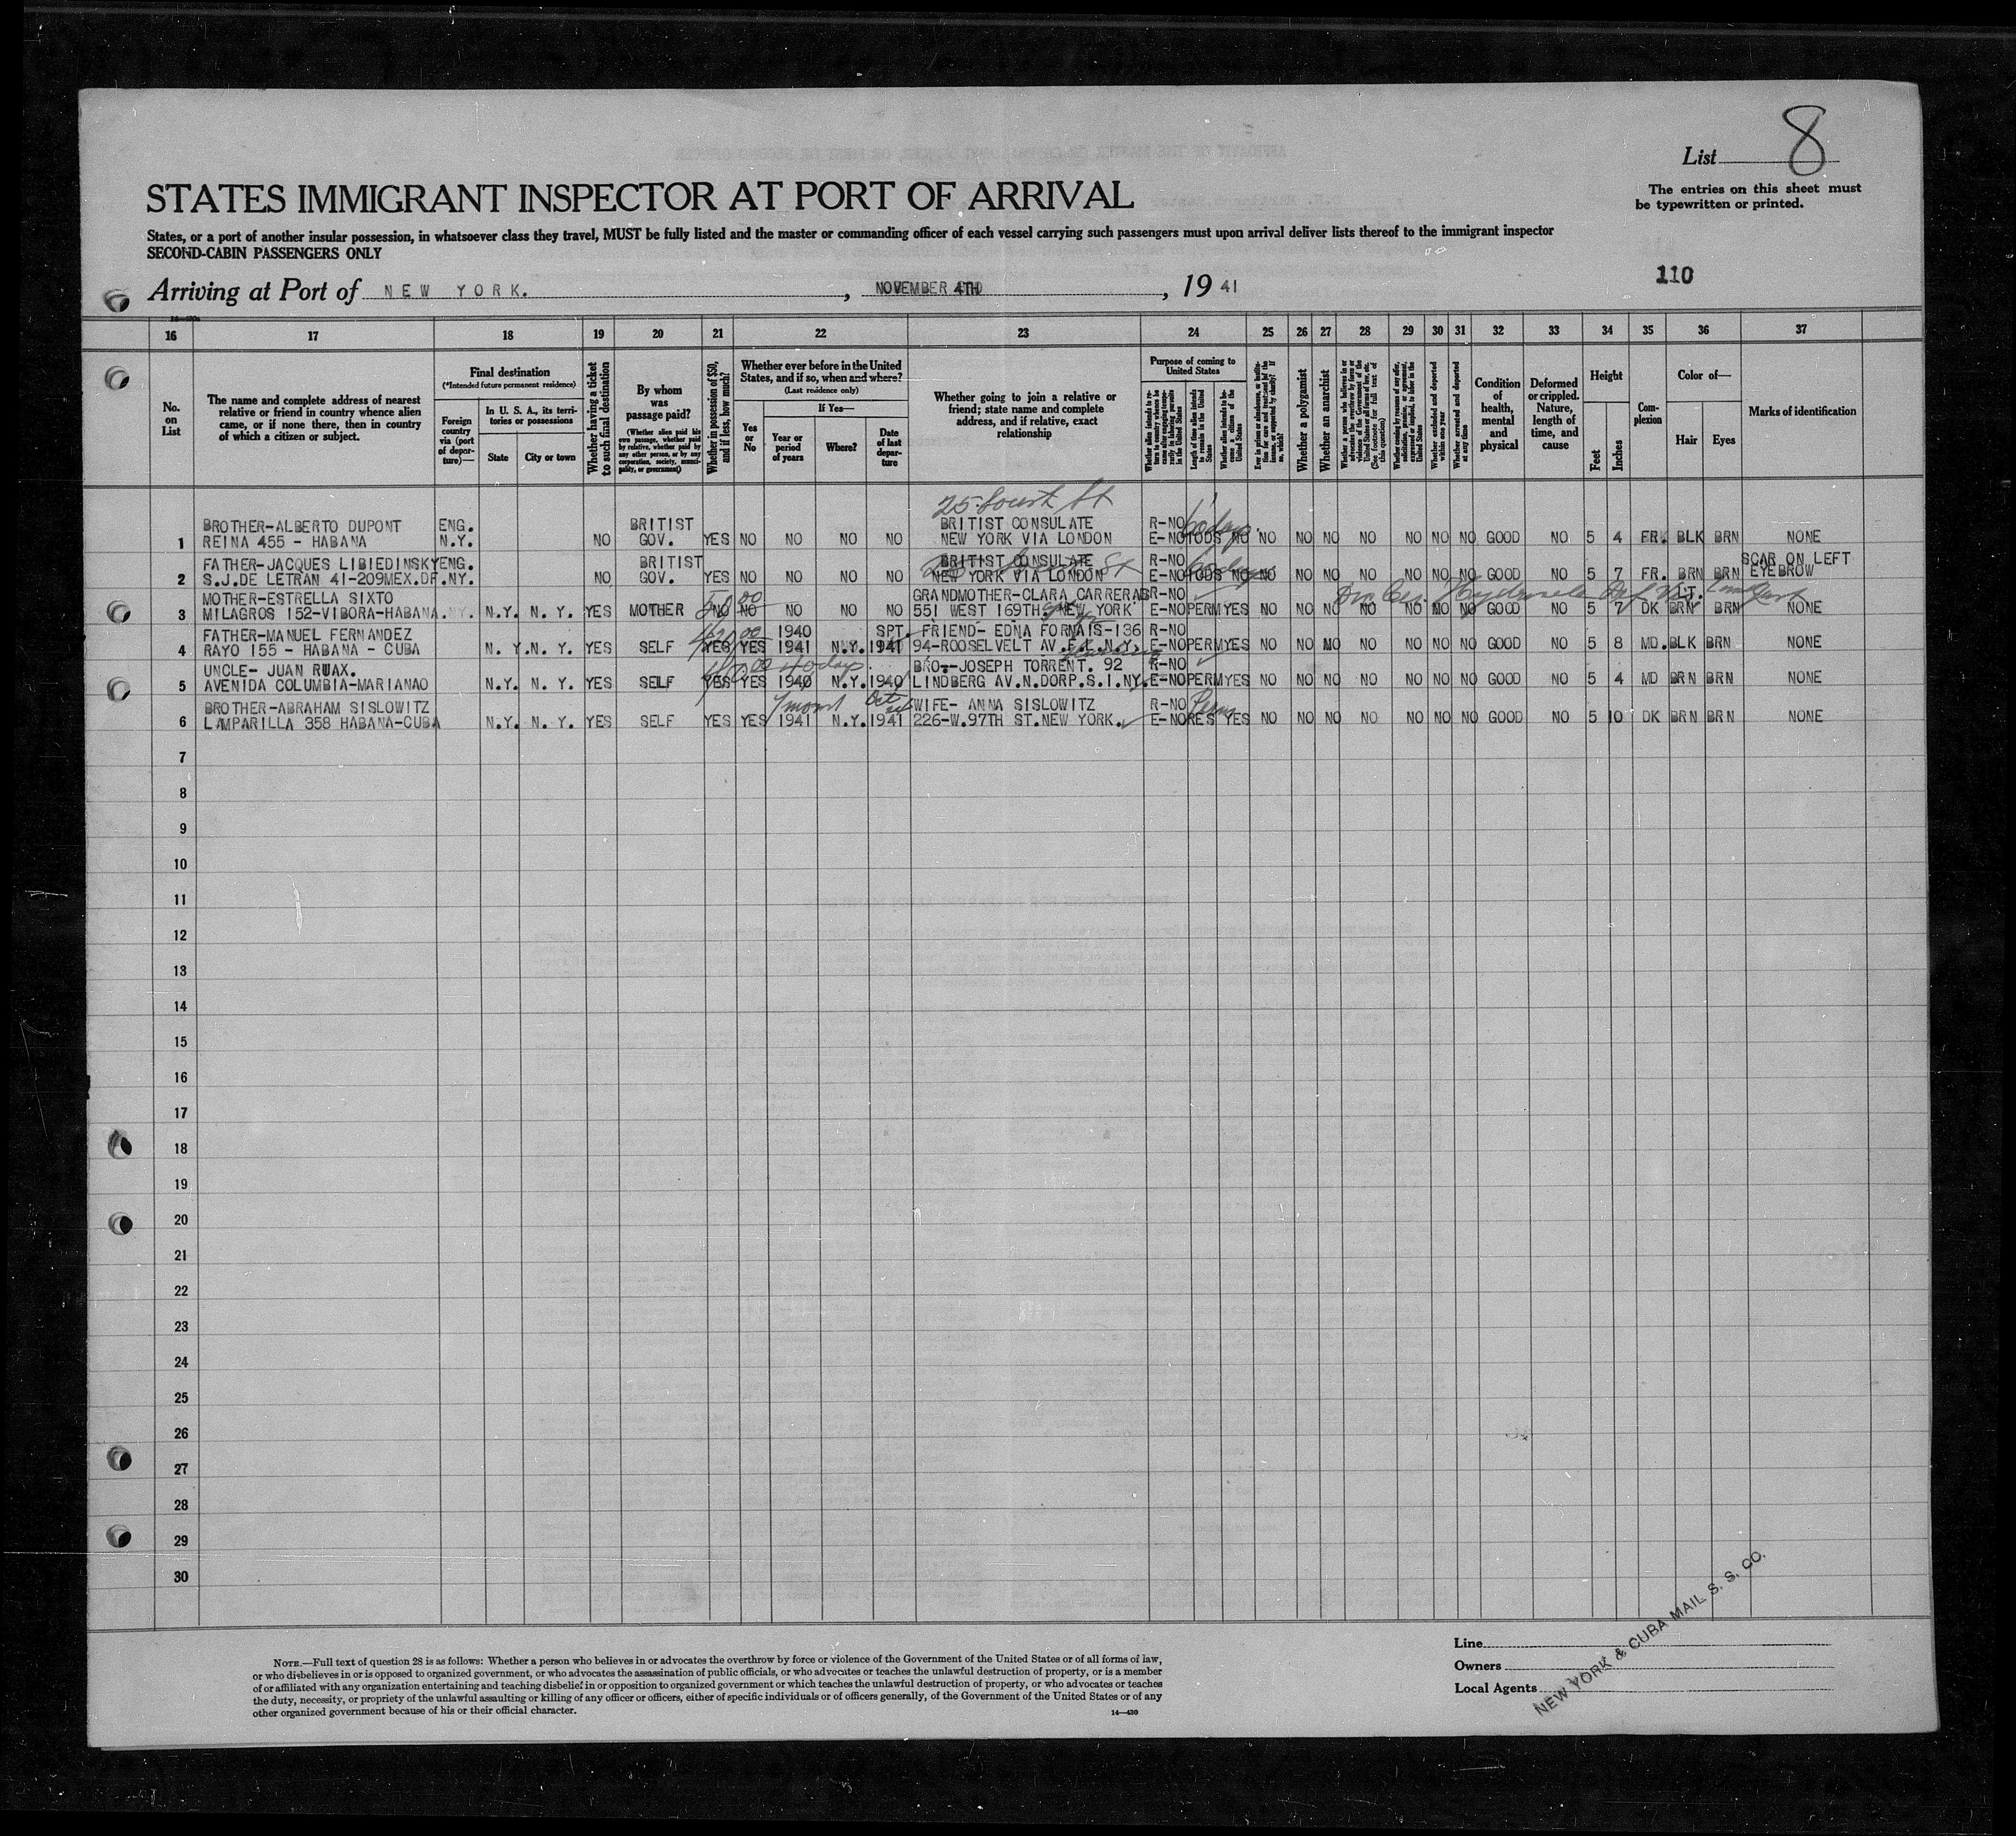 List 8
The entries on this sheet must
be typewritten or printed.
STATES IMMIGRANT INSPECTOR AT PORT OF ARRIVAL
States, or a port of another insular possession, in whatsoever class they travel, MUST be fully listed and the master or commanding officer of each vessel carrying such passengers must upon arrival deliver lists thereof to the immigrant inspector
SECOND-CABIN PASSENGERS ONLY
110
Arriving at Port of NEW YORK. , NOVEMBER 4TH , 19 41
16 17 18 19 20 21 22 23 24 25 26 27 28 29 30 31 32 33 34 35 36 37
No. on List
The name and complete address of nearest
relative or friend in country whence alien
came, or if none there, then in country
of which a citizen or subject.
Final destination
(*Intended future permanent residence)
Foreign country via (port of departure)—
In U. S. A., its territories or possessions
State
City or town
Whether having a ticket to such final destination
By whom was passage paid?
(Whether alien paid his own passage, whether paid by relative, whether paid by any other person, or by any corporation, society, municipality, or government)
Whether in possession of $50, and if less, how much?
Whether ever before in the United
States, and if so, when and where?
(Last residence only)
Yes or No
If Yes—
Year or period of years
Where?
Date of last departure
Whether going to join a relative or
friend; state name and complete
address, and if relative, exact
relationship
Purpose of coming to
United States
Length of time alien intends to remain in the United States
Whether alien intends to become a citizen of the United States
Whether a polygamist
Whether an anarchist
Whether excluded and deported within one year
Whether arrested and deported at any time
Condition of health, mental and physical
Deformed or crippled. Nature, length of time, and cause
Height
Feet
Inches
Complexion
Color of—
Hair
Eyes
Marks of identification
25 Court St
BROTHER-ALBERTO DUPONT ENG. BRITIST BRITIST CONSULATE R-NO 60 days
1 REINA 455 - HABANA N.Y. NO GOV. YES NO NO NO NO NEW YORK VIA LONDON E-NO NO NO NO NO NO NO NO NO GOOD NO 5 4 FR. BLK BRN NONE
FATHER-JACQUES LIBIEDINSKY ENG. BRITIST BRITIST CONSULATE R-NO SCAR ON LEFT
2 S.J.DE LETRAN 41-209MEX.DF. NY. NO GOV. YES NO NO NO NO NEW YORK VIA LONDON E-NO NO NO NO NO NO NO NO NO GOOD NO 5 7 FR. BRN BRN EYEBROW
MOTHER-ESTRELLA SIXTO GRANDMOTHER-CLARA CARRERAS R-NO LT.
3 MILAGROS 152-VIBORA-HABANA. N.Y. N. Y. YES MOTHER NO NO NO NO NO 551 WEST 169TH NEW YORK E-NO PERM YES NO NO NO NO NO NO NO GOOD NO 5 7 DK BRN BRN NONE
FATHER-MANUEL FERNANDEZ 1940 SPT. FRIEND- EDNA FORNAIS-136 R-NO
4 RAYO 155 - HABANA - CUBA N. Y. N. Y. YES SELF YES YES 1941 N.Y. 1941 94-ROOSELVELT AV. N.Y. E-NO PERM YES NO NO NO NO NO NO NO GOOD NO 5 8 MD. BLK BRN NONE
UNCLE- JUAN RUAX. 40 days BRO.-JOSEPH TORRENT. 92 R-NO
5 AVENIDA COLUMBIA-MARIANAO N.Y. N. Y. YES SELF YES YES 1940 N.Y. 1940 LINDBERG AV.N.DORP.S.I.NY. E-NO PERM YES NO NO NO NO NO NO NO GOOD NO 5 4 MD BRN BRN NONE
BROTHER-ABRAHAM SISLOWITZ 7 mont Oct WIFE- ANNA SISLOWITZ R-NO Perm
6 LAMPARILLA 358 HABANA-CUBA N.Y. N. Y. YES SELF YES YES 1941 N.Y. 1941 226-W.97TH ST.NEW YORK. E-NO RES YES NO NO NO NO NO NO NO GOOD NO 5 10 DK BRN BRN NONE
7
8
9
10
11
12
13
14
15
16
17
18
19
20
21
22
23
24
25
26
27
28
29
30
NOTE.—Full text of question 28 is as follows: Whether a person who believes in or advocates the overthrow by force or violence of the Government of the United States or of all forms of law,
or who disbelieves in or is opposed to organized government, or who advocates the assassination of public officials, or who advocates or teaches the unlawful destruction of property, or is a member
of or affiliated with any organization entertaining and teaching disbelief in or opposition to organized government or which teaches the unlawful destruction of property, or who advocates or teaches
the duty, necessity, or propriety of the unlawful assaulting or killing of any officer or officers, either of specific individuals or of officers generally, of the Government of the United States or of any
other organized government because of his or their official character.
14—430
Line
Owners
Local Agents
NEW YORK & CUBA MAIL S. S. CO.